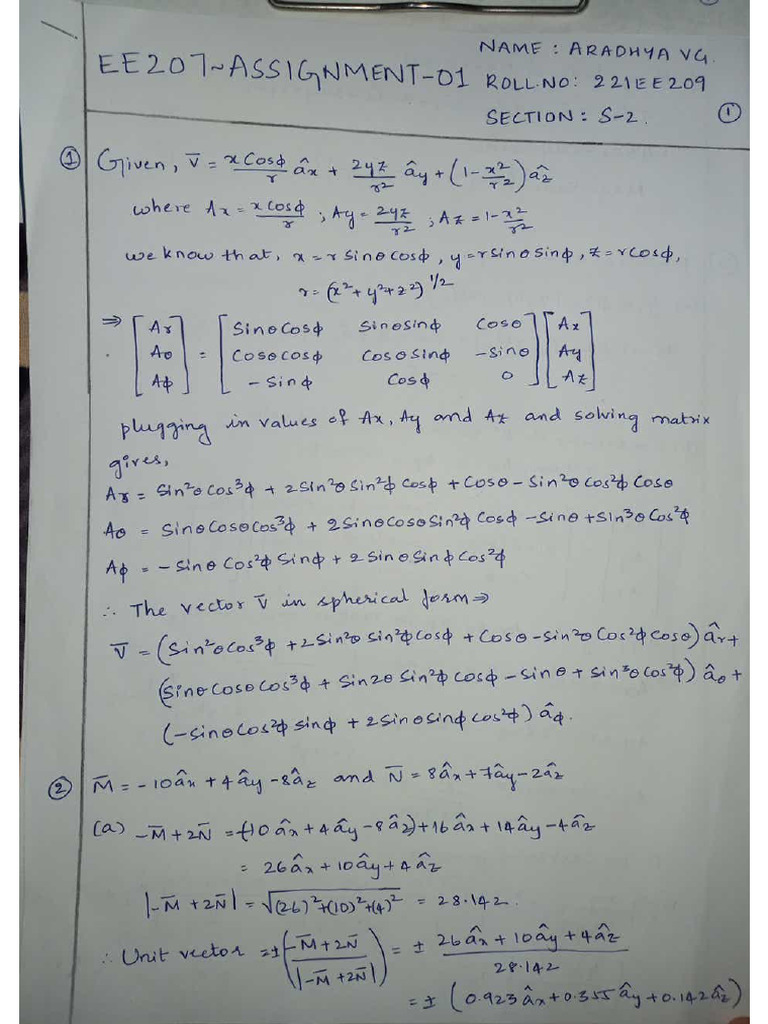 EE207~ASSIGNMENT-01
NAME : ARADHYA VG.
ROLL.NO: 221EE209
SECTION: S-2.
①
① Given, V̄ = xCosϕ/r âx + 2yz/r² ây + (1-x²/r²) âz
where Ax = xcosϕ/r ; Ay = 2yz/r² ; Az = 1-x²/r²
we know that, x = rsinθcosϕ, y=rsinθsinϕ, z=rcosϕ,
r = (x²+y²+z²)^1/2
⇒ [Ar Aθ Aϕ] = [SinθCosϕ Sinθsinϕ Cosθ; Cosθcosϕ CosθSinϕ -Sinθ; -Sinϕ Cosϕ 0] [Ax Ay Az]
plugging in values of Ax, Ay and Az and solving matrix
gives,
Ar = Sin²θcos³ϕ + 2Sin²θSin²ϕ Cosϕ + Cosθ - Sin²θ cos²ϕ Cosθ
Aθ = SinθCosθcos³ϕ + 2SinθcosθSin²ϕ Cosϕ - Sinθ + Sin³θCos²ϕ
Aϕ = -Sinθ Cos²ϕ Sinϕ + 2SinθSinϕCos²ϕ
∴ The vector V̄ in spherical form ⇒
V̄ = (Sin²θcos³ϕ + 2Sin²θ sin²ϕcosϕ + Cosθ - Sin²θ Cos²ϕ cosθ) âr +
(SinθCosθCos³ϕ + Sin2θ Sin²ϕ cosϕ - sinθ + sin³θcos²ϕ) âθ +
(-sinθcos²ϕ sinϕ + 2sinθsinϕcos²ϕ) âϕ.
② M̄ = -10âx + 4ây - 8âz and N̄ = 8âx + 7ây - 2âz
(a) -M̄ + 2N̄ = +10âx + 4ây - 8âz) + 16âx + 14ây - 4âz
= 26âx + 10ây + 4âz
|-M̄ + 2N̄| = √(26)²+(10)²+(4)² = 28.142.
∴ Unit vector = ±(-M̄+2N̄/|-M̄+2N̄|) = ± 26âx + 10ây + 4âz/28.142
= ± (0.923âx + 0.355ây + 0.142âz)